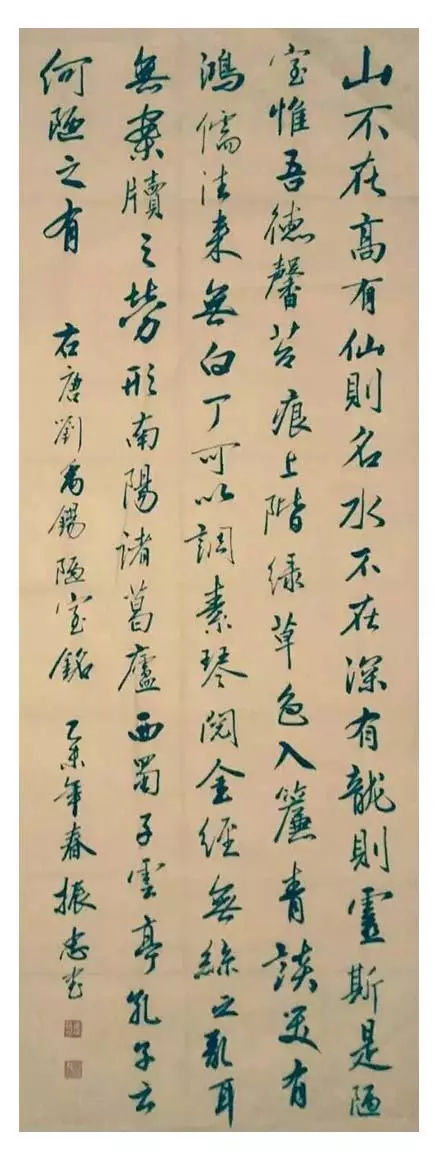 山不在高有仙則名水不在深有龍則靈斯是陋
室惟吾德馨苔痕上階绿草色入簾青談笑有
鴻儒往来無白丁可以調素琴閱金經無絲之亂耳
無案牘之勞形南陽諸葛廬西蜀子雲亭孔子云
何陋之有 右唐劉禹錫陋室銘 乙未年春振忠书